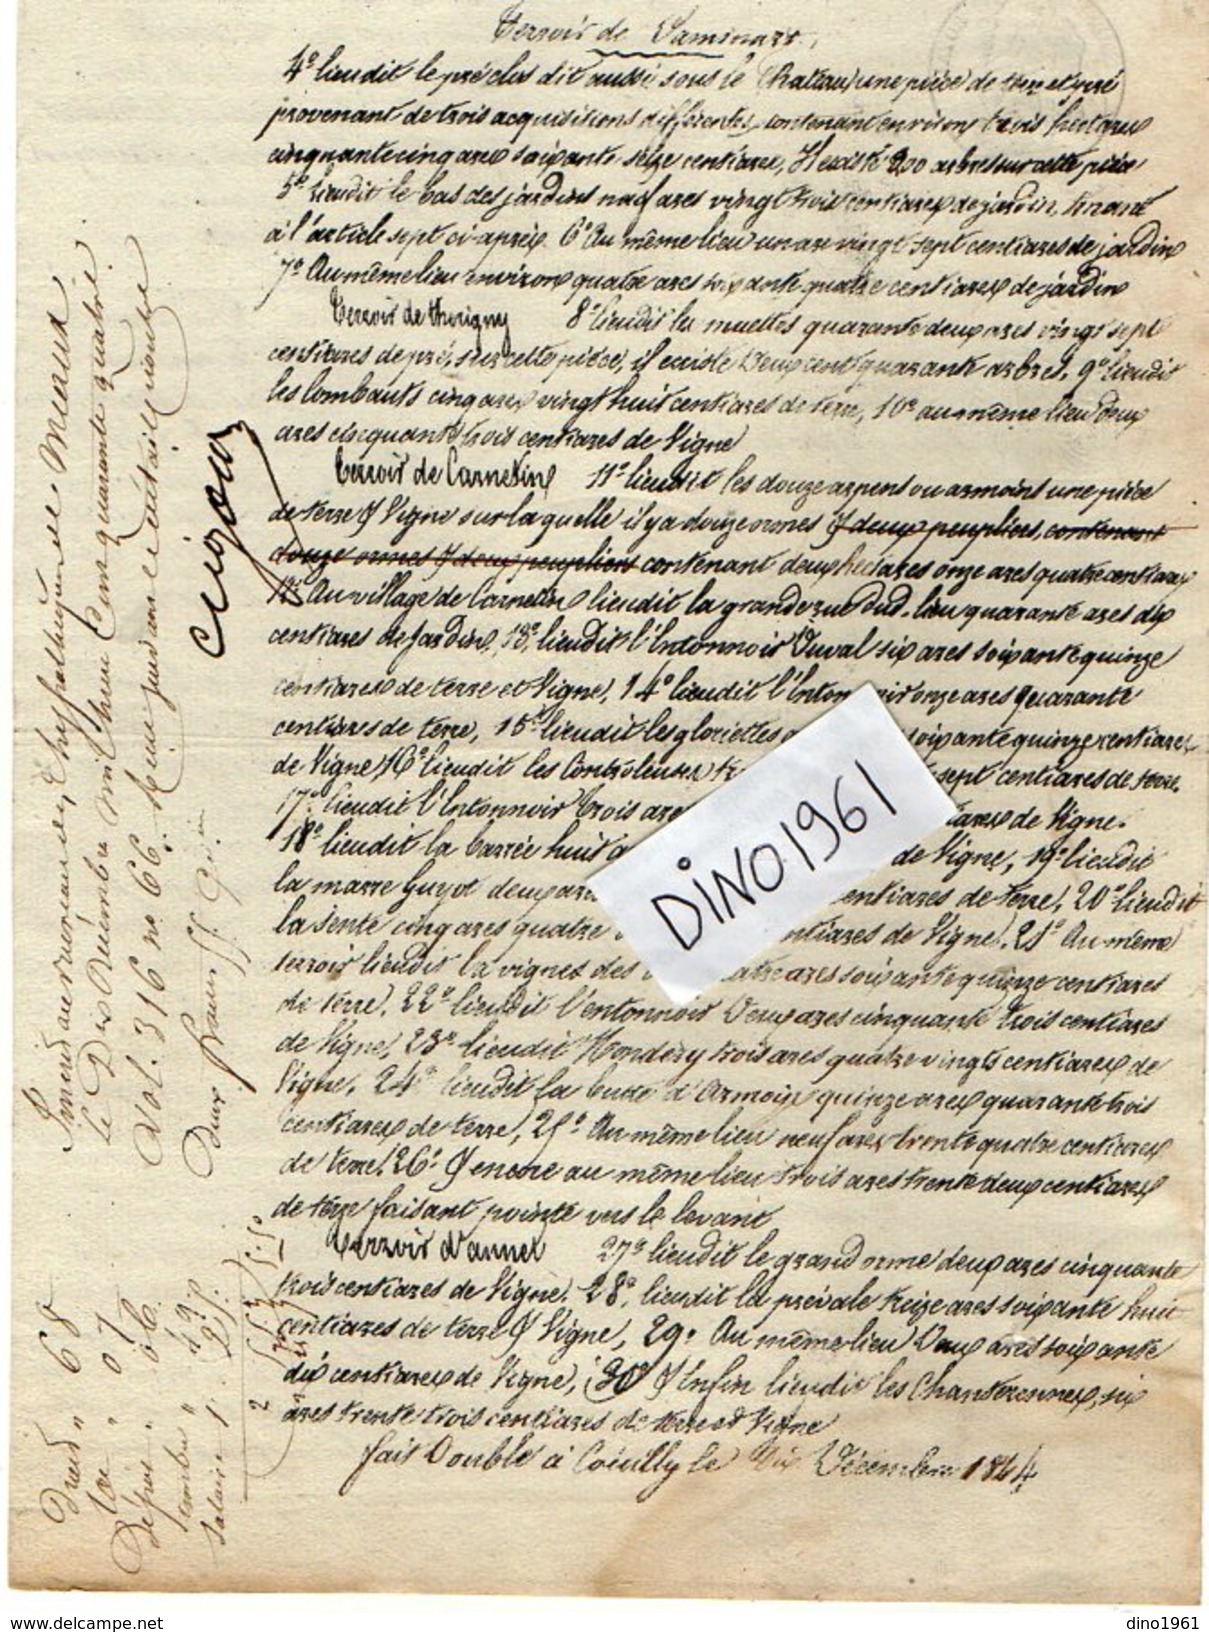 Terroir de Dampmart.
4º lieudit le pré clos dit aussi sous le Chateau une pièce de terre et pré
provenant de trois acquisitions différentes, contenant environ trois hectares
cinquante cinq ares soixante seize centiares, Il existe 200 arbres sur cette pièce
5º lieudit le bas des jardins neuf ares vingt trois centiares de jardin, tenant
à l'article sept ci-après. 6º Au même lieu un are vingt sept centiares de jardin
7º Au même lieu environ quatre ares soixante quatre centiares de jardin
Terroir de thorigny 8º lieudit les muettes quarante deux ares vingt sept
centiares de pré, sur cette pièce, il existe Deux cent quarante arbres, 9º lieudit
les Combauts cinq ares vingt huit centiares de terre, 10º au même lieu deux
ares cinquante trois centiares de Vigne
Terroir de Carnetin 11º lieudit les douze arpens ou armoins une pièce
de terre & Vigne sur laquelle il y a douze ormes & deux peupliers, contenant
douze ormes & deux peupliers contenant deux hectares onze ares quatre centiares
12º Au village de Carnetin lieudit la grande rue dud. lieu quarante ares dix
centiares de Jardin, 13º lieudit l'Entonnoir Duval six ares soixante quinze
centiares de terre et Vigne, 14º lieudit l'Enton oir onze ares quarante
centiares de terre, 15º lieudit les gloriettes soixante quinze centiares
de Vigne 16º lieudit les Controleuses sept centiares de terre.
17º lieudit l'Entonnoir trois ares tiares de Vigne.
18º lieudit la Carrée huit a de Vigne, 19º lieudit
la marre Guyot deux ares entiares de terre, 20º lieudit
la sente cinq ares quatre ntiares de Vigne, 21º Au même
terroir lieudit la vignes des atre ares soixante quinze centiares
de terre, 22º lieudit l'entonnoir Deux ares cinquante trois centiares
de Vigne, 23º lieudit Mondézy trois ares quatre vingts centiares de
Vigne, 24º lieudit la butte d'Armoin quinze ares quarante trois
centiares de terre, 25º Au même lieu neuf ares trente quatre centiares
de terre, 26º & encore au même lieu trois ares trente deux centiares
de terre faisant pointe vers le levant
Terroir d'annet 27º lieudit le grand orme deux ares cinquante
trois centiares de Vigne, 28º lieudit la prévale treize ares soixante huit
centiares de terre & Vigne, 29º Au même lieu Deux ares soixante
dix centiares de Vigne, 30º & Enfin lieudit les Chanteronnes, six
ares trente trois centiares de terre et Vigne
fait Double à Couilly le Dix Décembre 1864
au bureau des hypothèques de Meaux
le Dix Décembre mil huit Cent quarante quatre
Vol. 316 nº 66.
Deux francs
Droit " 68
" 07
Dépôt "
Timbre "
Salaire 1.
DINO1961
dino1961